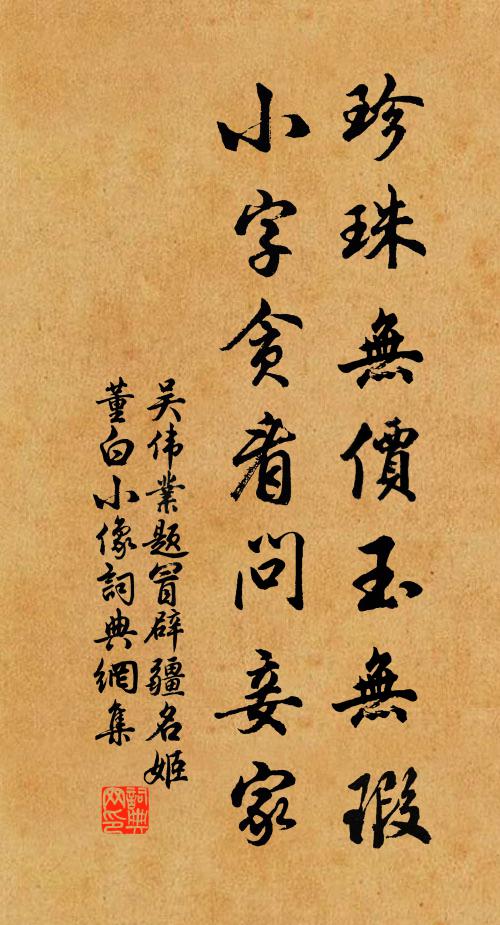 珍珠無價玉無瑕
小字貪看問妾家
吴伟業题冒辟疆名姬
董白小像詞典網集
詞典網印